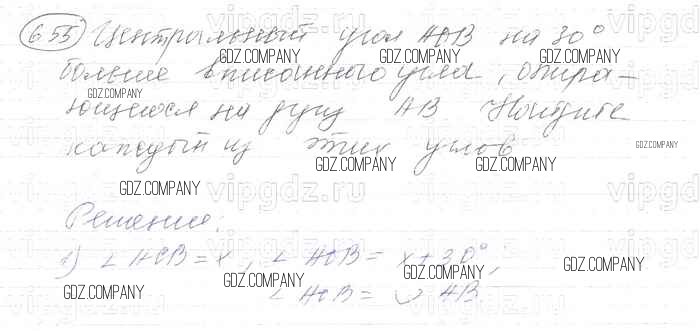 655 Центральный угол AOB на 30°
больше вписанного угла, опира-
ющегося на дугу AB Найдите
каждый из этих углов
Решение:
1) ∠ACB = x, ∠AOB = x + 30°;
∠AOB = ◡ AB
GDZ.COMPANY
vipgdz.ru